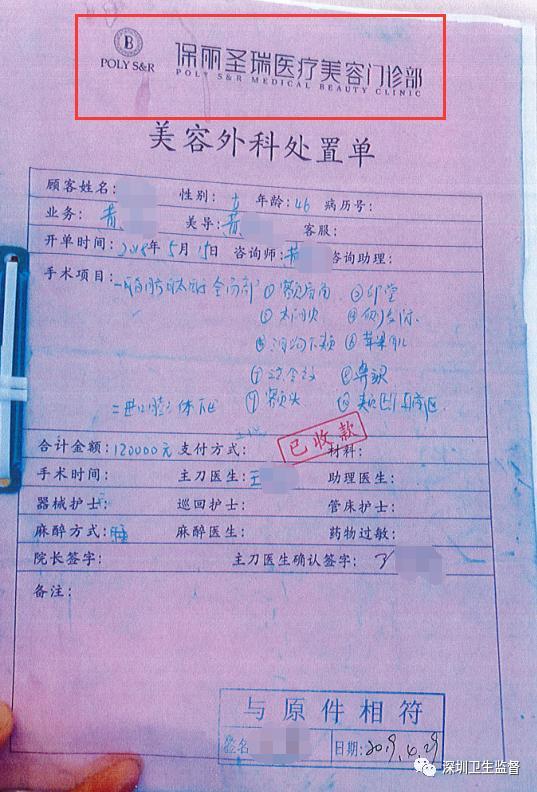 POLY S&R
保丽圣瑞医疗美容门诊部
POLY S&R MEDICAL BEAUTY CLINIC
美容外科处置单
顾客姓名： 性别：女 年龄：46 病历号：
业务：黄 美导：黄 客服：
开单时间：2018年5月15日 咨询师：黄 咨询助理：
手术项目：一、 全面部 ①额 ②印堂
③太阳穴 ④
⑤泪沟 ⑥苹果肌
⑦法令纹 ⑧鼻
二、 ⑨额头 ⑩
合计金额：120000元 支付方式： 材料：
已收款
手术时间： 主刀医生：王 助理医生：
器械护士： 巡回护士： 管床护士：
麻醉方式： 麻醉医生： 药物过敏：
院长签字： 主刀医生确认签字：
备注：
与原件相符
签名 日期：2019.4.29
深圳卫生监督